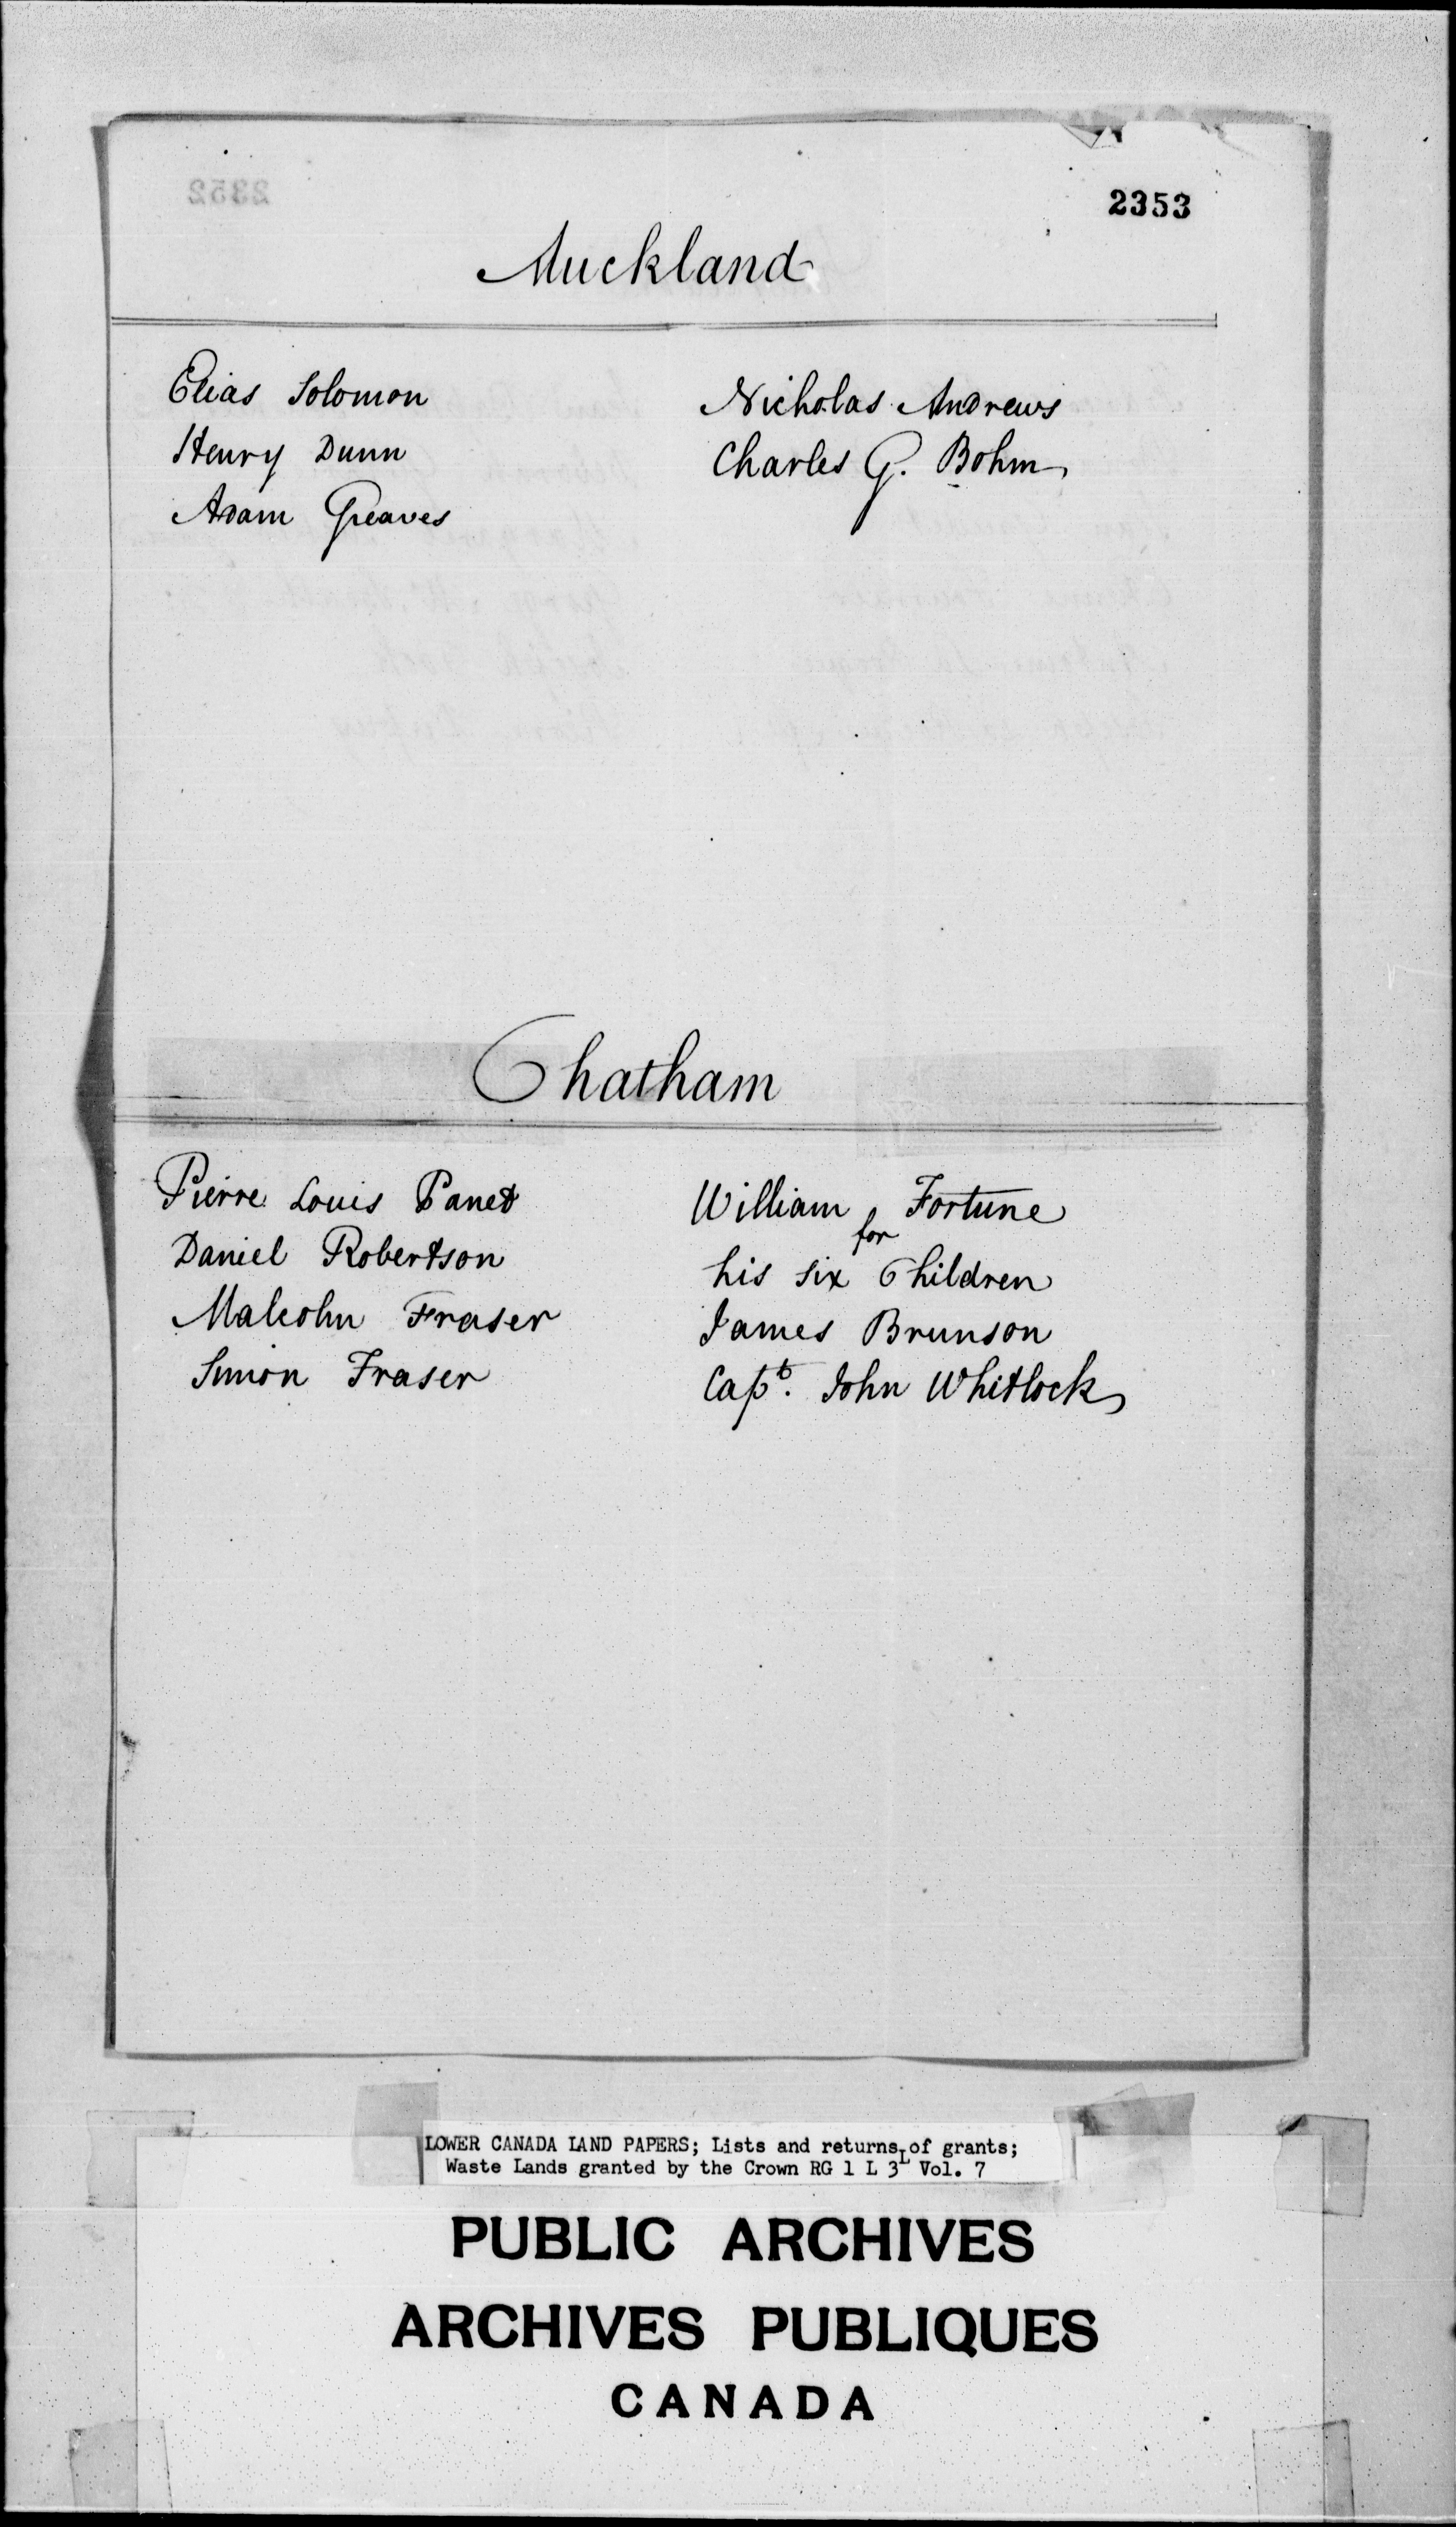 2353
Auckland
Elias Solomon
Henry Dunn
Adam Greaves
Nicholas Andrews
Charles G. Bohm
Chatham
Pierre Louis Panet
Daniel Robertson
Malcolm Fraser
Simon Fraser
William Fortune
for
his six Children
James Brunson
Capt. John Whitlock
LOWER CANADA LAND PAPERS; Lists and returns of grants;
Waste Lands granted by the Crown RG 1 L 3L Vol. 7
PUBLIC ARCHIVES
ARCHIVES PUBLIQUES
CANADA